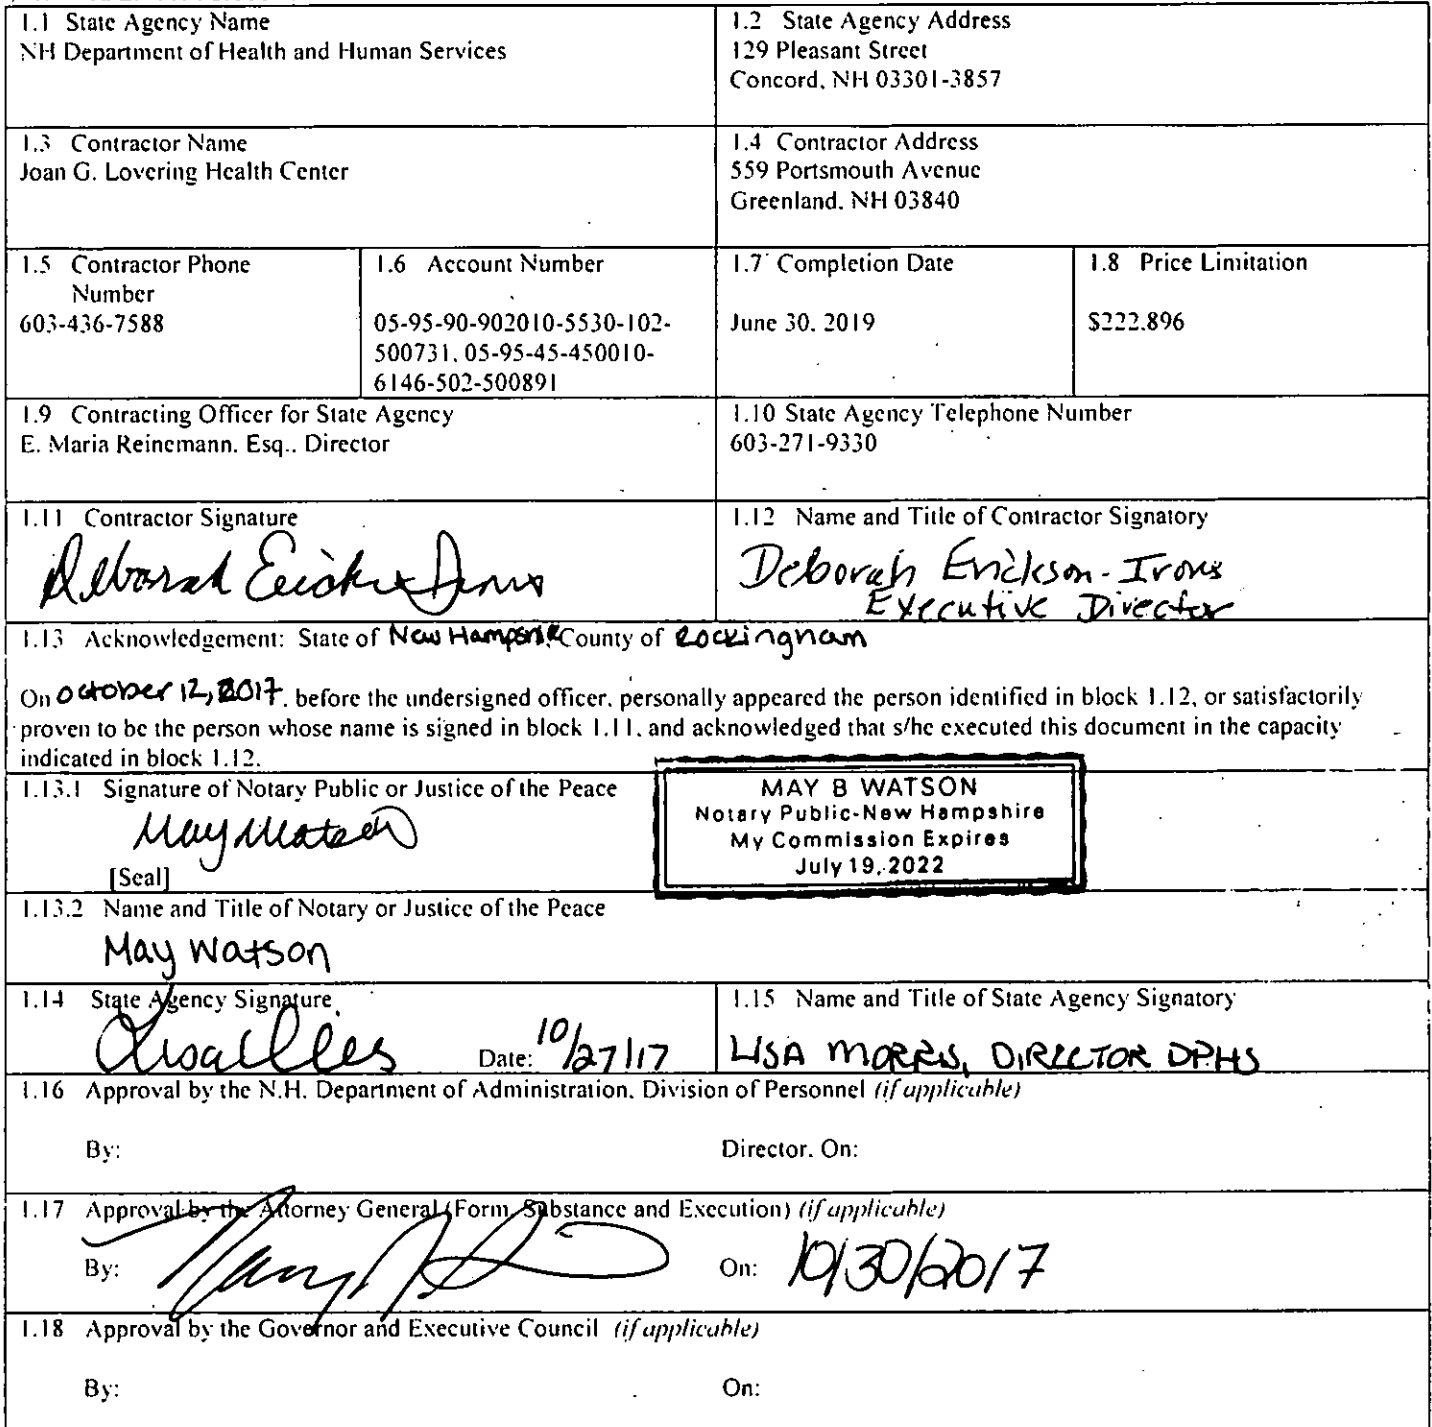 1.1 State Agency Name
NH Department of Health and Human Services
1.2 State Agency Address
129 Pleasant Street
Concord, NH 03301-3857
1.3 Contractor Name
Joan G. Lovering Health Center
1.4 Contractor Address
559 Portsmouth Avenue
Greenland, NH 03840
1.5 Contractor Phone
Number
603-436-7588
1.6 Account Number
05-95-90-902010-5530-102-
500731, 05-95-45-450010-
6146-502-500891
1.7 Completion Date
June 30, 2019
1.8 Price Limitation
$222,896
1.9 Contracting Officer for State Agency
E. Maria Reinemann, Esq., Director
1.10 State Agency Telephone Number
603-271-9330
1.11 Contractor Signature
Deborah Erickson-Irons
1.12 Name and Title of Contractor Signatory
Deborah Erickson-Irons
Executive Director
1.13 Acknowledgement: State of New Hampshire, County of Rockingham
On October 12, 2017, before the undersigned officer, personally appeared the person identified in block 1.12, or satisfactorily
proven to be the person whose name is signed in block 1.11, and acknowledged that s/he executed this document in the capacity
indicated in block 1.12.
1.13.1 Signature of Notary Public or Justice of the Peace
May Watson
[Seal]
MAY B WATSON
Notary Public-New Hampshire
My Commission Expires
July 19, 2022
1.13.2 Name and Title of Notary or Justice of the Peace
May Watson
1.14 State Agency Signature
Date: 10/27/17
1.15 Name and Title of State Agency Signatory
LISA MORRIS, DIRECTOR DPHS
1.16 Approval by the N.H. Department of Administration, Division of Personnel (if applicable)
By:
Director, On:
1.17 Approval by the Attorney General (Form, Substance and Execution) (if applicable)
By:
On: 10/30/2017
1.18 Approval by the Governor and Executive Council (if applicable)
By:
On: